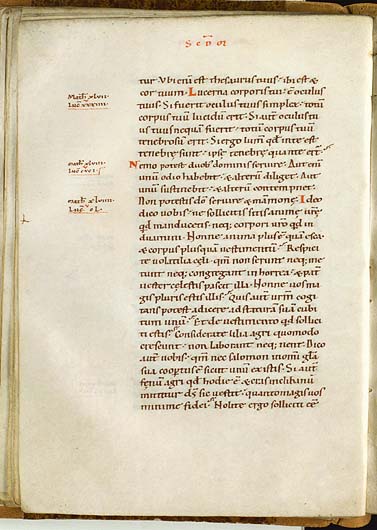 SCDM
tur. Ubi enī est thesaurus tuus. ibi est &
cor tuum. Lucerna corporis tui. ē oculus
tuus. Si fuerit oculus tuus simplex. totū
corpus tuū lucidū erit. Si aut̄ oculus tu
us nequā fuerit. totū corpus tuū
tenebrosū erit. Si ergo lum̄ qd̄ in te est
tenebre sunt. ipse tenebre quante erт̄.
Nemo potest duob; dominis servire. Aut eni
unū odio habebit. & alterū diliget. Aut
unū sustinebit. & alterū contempnet.
Non potestis dō servire & mamone. Ideo
dico vobis. ne solliciti sitis anime vrē.
qd̄ manducetis. neq; corpori vrō qd̄ in
duamini. Nonne anima plus ē quā esca.
& corpus plus quā vestimentū. Respici
te volatilia celi. qm̄ non serunt neq; me
tunt neq; congregant in horrea. & pat̄
vester celestis pascit illa. Nonne vos ma
gis pluris estis illis. Quis aut̄ vrm̄ cogi
tans potest adicere ad staturā suā cubi
tum unū. Et de vestimento qd̄ solliciti
estis. Considerate lilia agri quomodo
crescunt. non laborant neq; nent. Dico
aut̄ vobis. qm̄ nec salomon in omi glā
sua coopertus ē sicut unū ex istis. Si aut̄
fenū agri qd̄ hodie ē & cras in clibanū
mittitur dš sic vestit. quanto magis vos
minime fidei. Nolite ergo solliciti eē